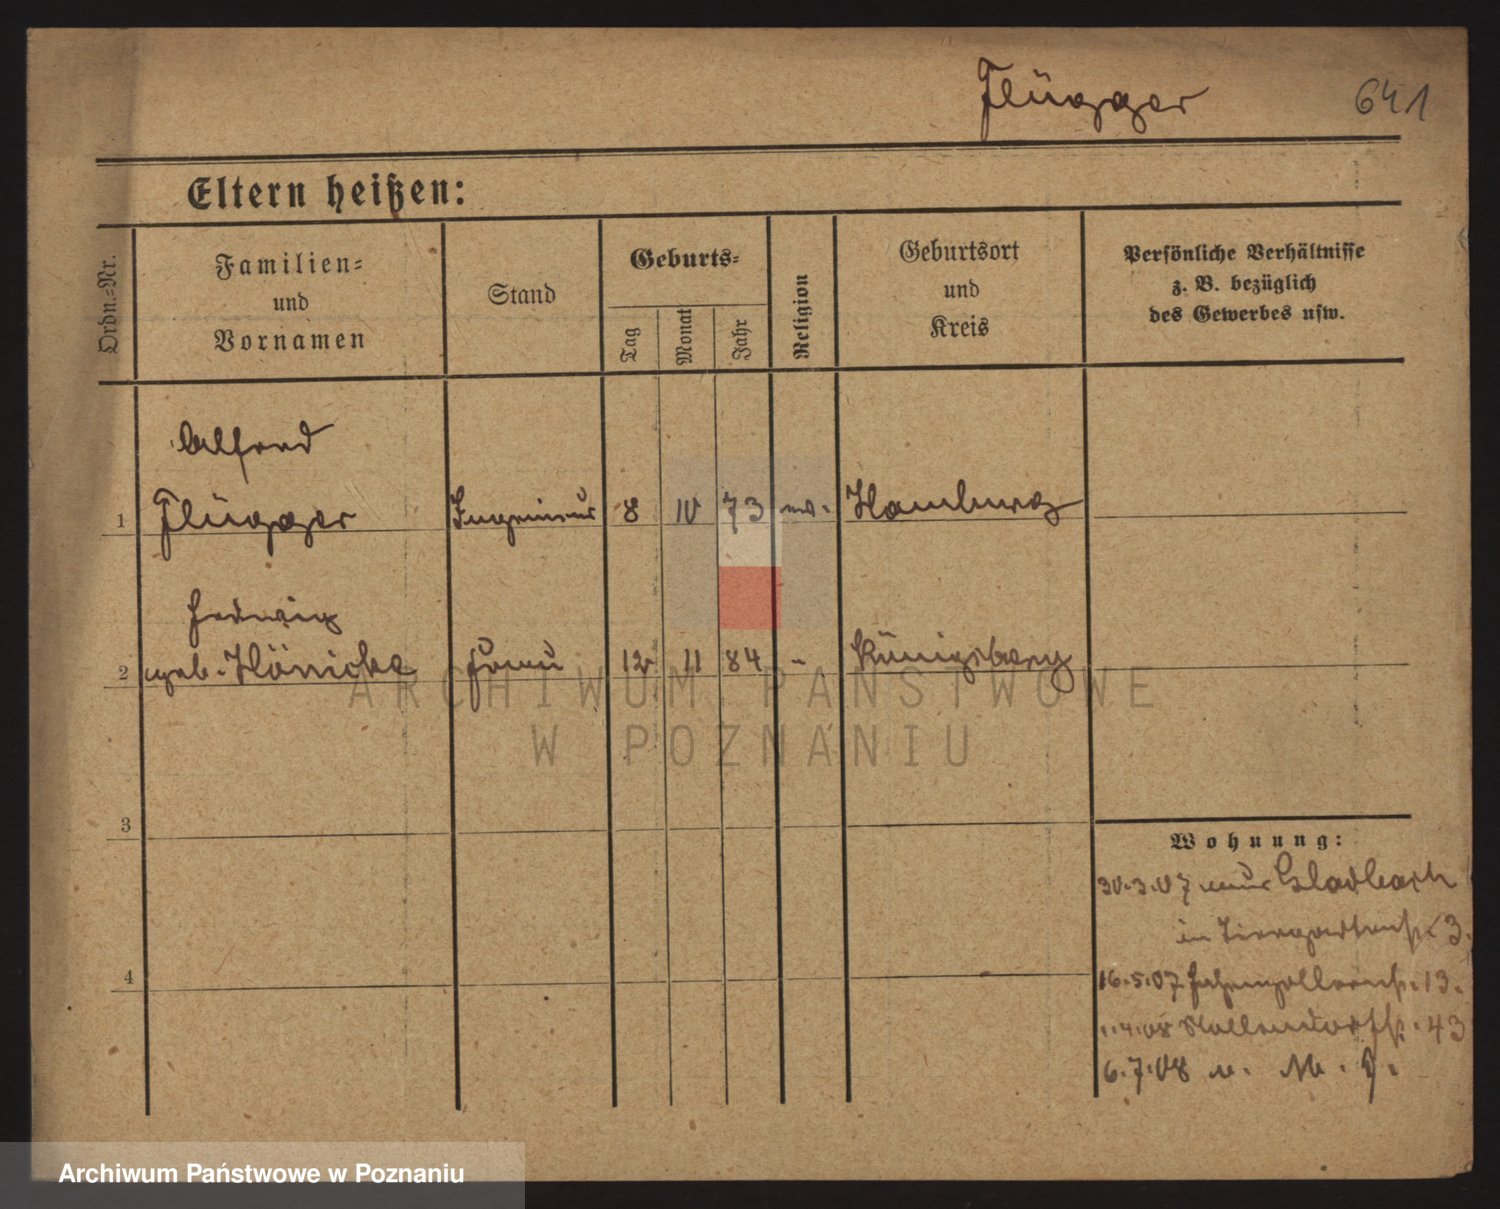 Flügger 641
Eltern heißen:
Ordn.-Nr.
Familien-
und
Vornamen
Stand
Geburts-
Tag
Monat
Jahr
Religion
Geburtsort
und
Kreis
Persönliche Verhältnisse
z. B. bezüglich
des Gewerbes usw.
Alfred
1 Flügger Ingenieur 8 IV 73 ev. Hamburg
Hedwig
2 geb. Hönicke Frau 12 11 84 - Königsberg
ARCHIWUM PAŃSTWOWE
W POZNANIU
3
Wohnung:
30.3.07 Gladbach
in Tiergartenstr 3.
4
16.5.07. 13.
1.4.08 Nollendorfstr. 43
6.7.08 n. M.
Archiwum Państwowe w Poznaniu